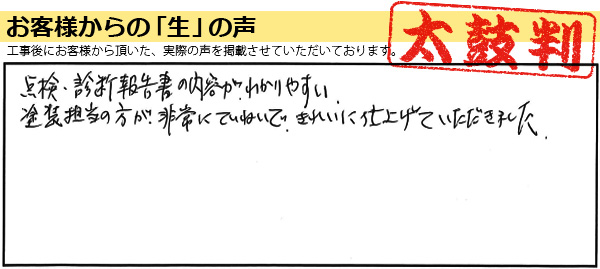 お客様からの「生」の声
工事後にお客様から頂いた、実際の声を掲載させていただいております。
太鼓判
点検・診断報告書の内容がわかりやすい.
塗装担当の方が非常にていねいで.きれいに仕上げていただきました.